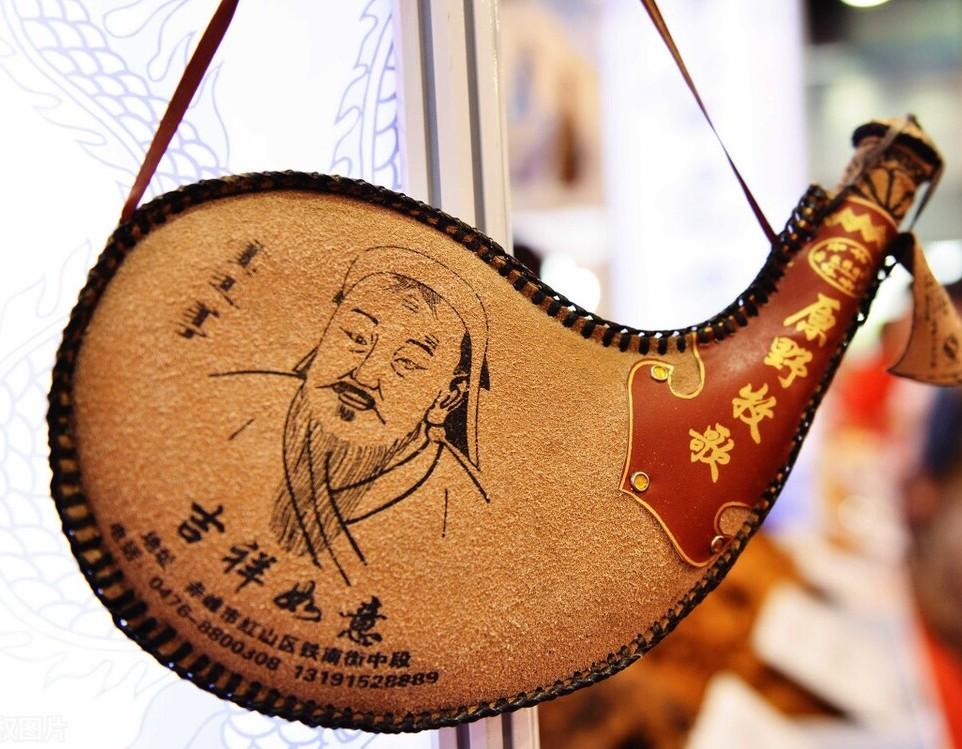 原野牧歌
吉祥如意
地址 赤峰市红山区铁南街中段
电话 0476-8800308 13191528889
权图片